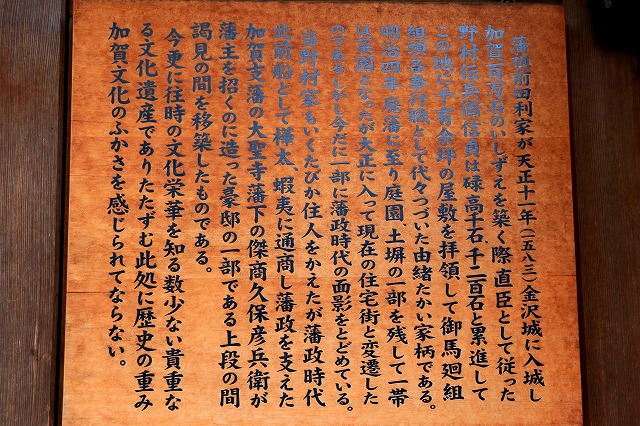 藩祖前田利家が天正十一年(一五八三)金沢城に入城し
加賀百万石のいしずえを築く際直臣として従った
野村伝兵衛信貞は禄高千石、千二百石と累進して
この地に千有余坪の屋敷を拝領して御馬廻組
組頭各奉行職として代々つづいた由緒たかい家柄である。
明治四年廃藩に至り庭園、土塀の一部を残して一帯
は菜園となったが大正に入って現在の住宅街と変遷した
のであるしかし今だに一部に藩政時代の面影をとどめている。
当野村家もいくたびか住人をかえたが藩政時代
北前船として樺太、蝦夷に通商し藩政を支えた
加賀支藩の大聖寺藩下の傑商久保彦兵衛が
藩主を招くのに造った豪邸の一部である上段の間
謁見の間を移築したものである。
今更に往時の文化栄華を知る数少ない貴重な
る文化遺産でありたたずむ此処に歴史の重み
加賀文化のふかさを感じられてならない。